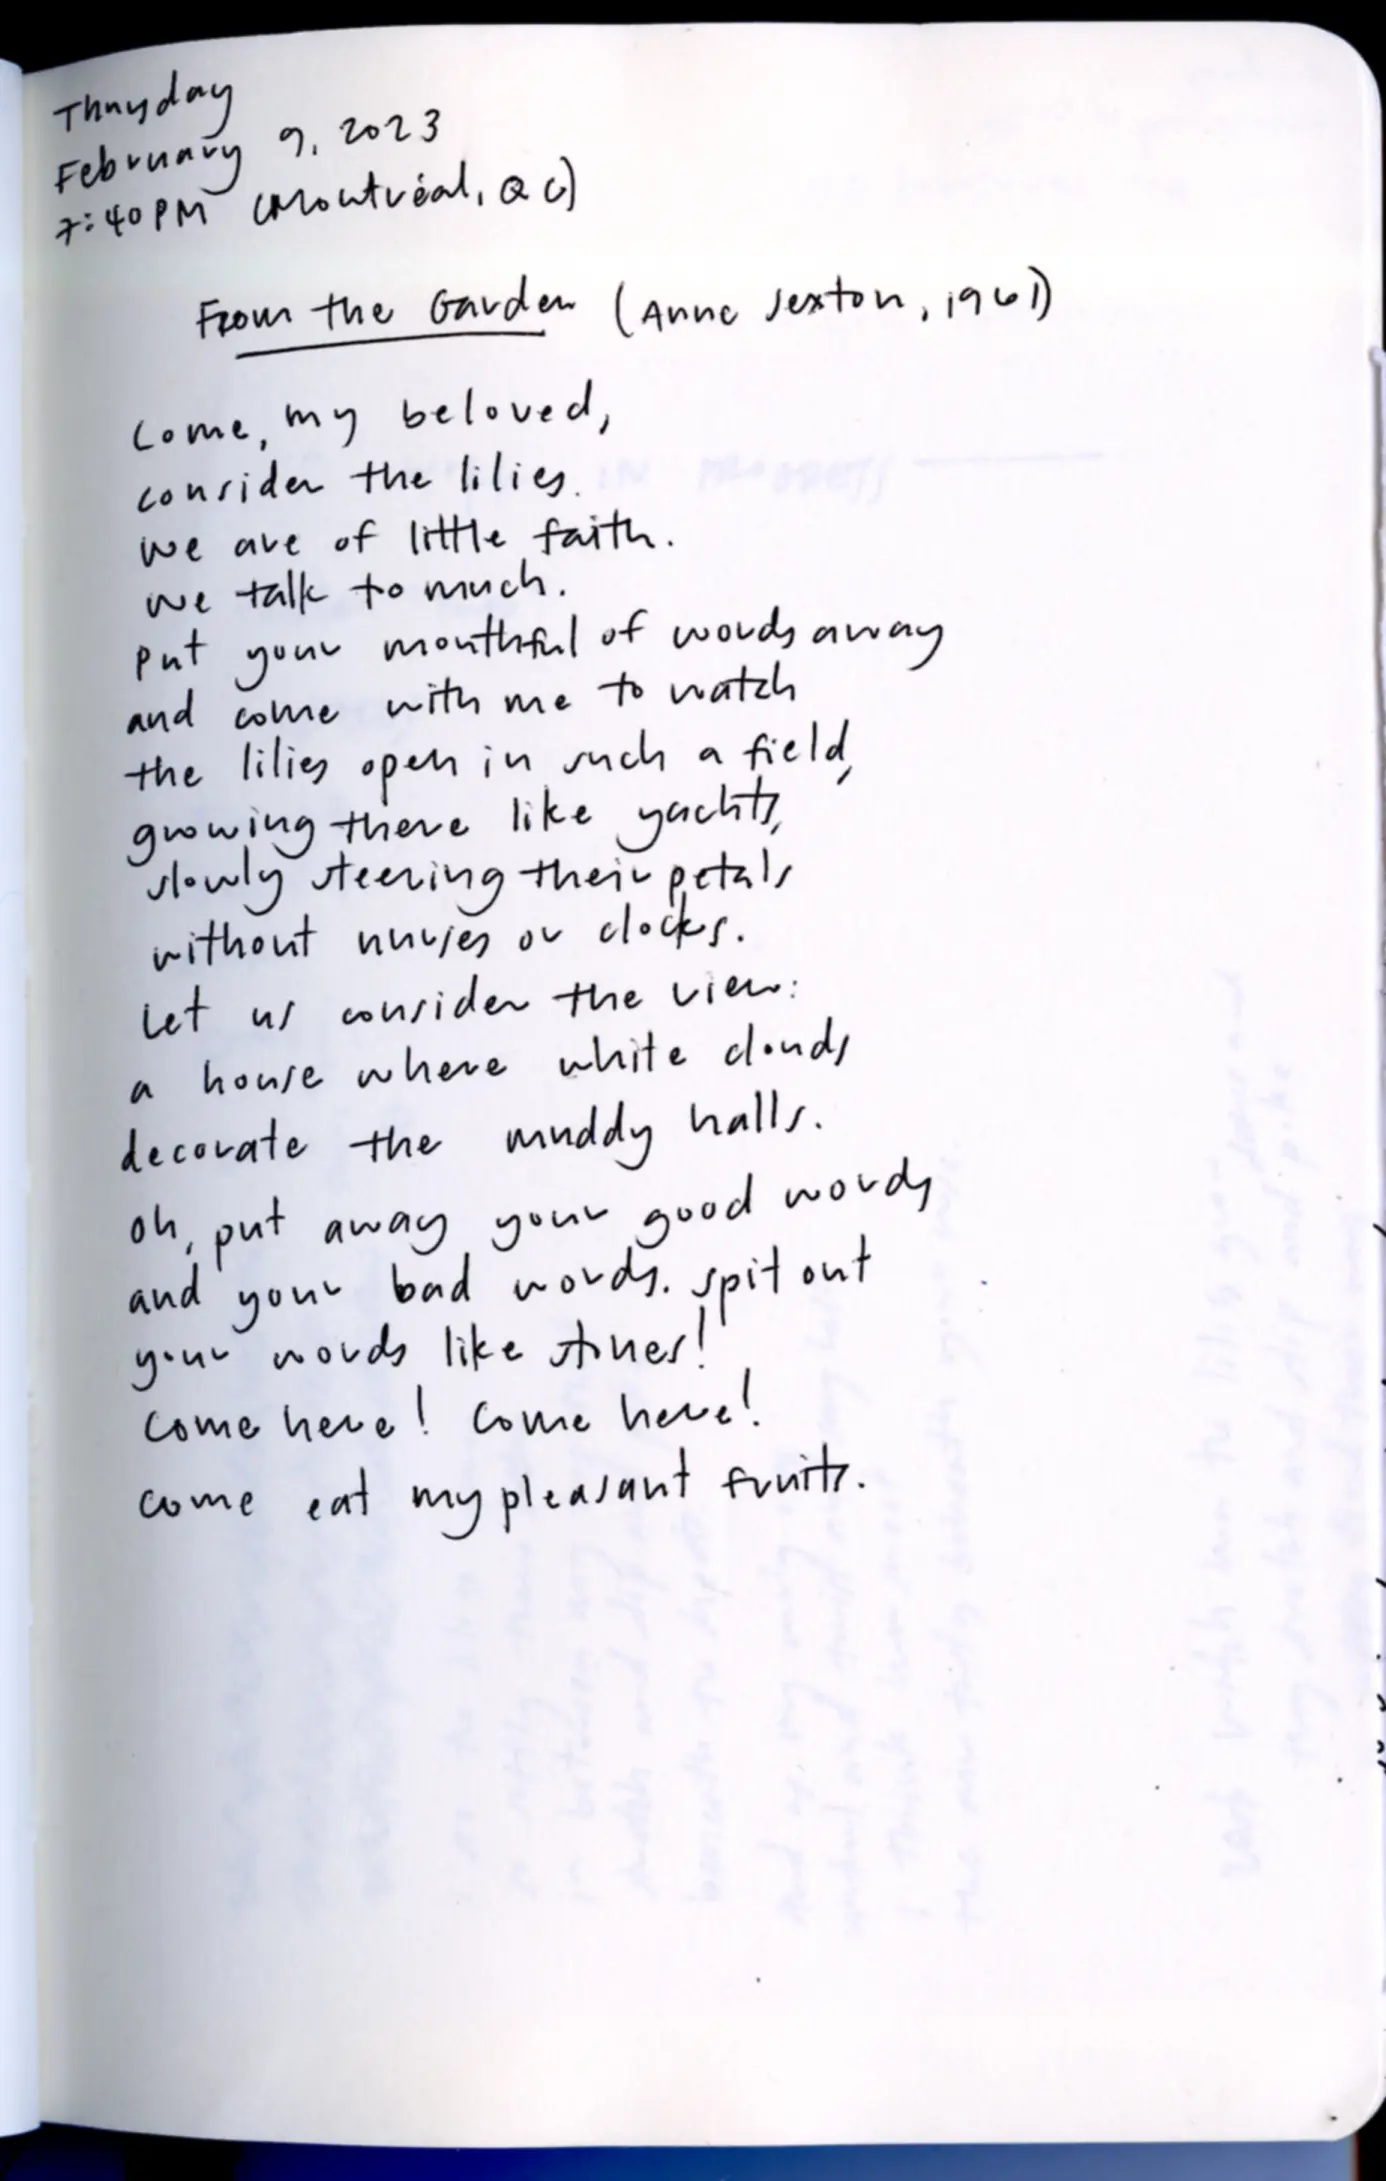 Thursday
February 9, 2023
7:40PM (Montréal, QC)
From the Garden (Anne Sexton, 1961)
Come, my beloved,
consider the lilies.
We are of little faith.
We talk to much.
Put your mouthful of words away
and come with me to watch
the lilies open in such a field,
growing there like yachts,
slowly steering their petals
without nurses or clocks.
Let us consider the view:
a house where white clouds
decorate the muddy halls.
Oh, put away your good words
and your bad words. Spit out
your words like stones!
Come here! Come here!
Come eat my pleasant fruits.